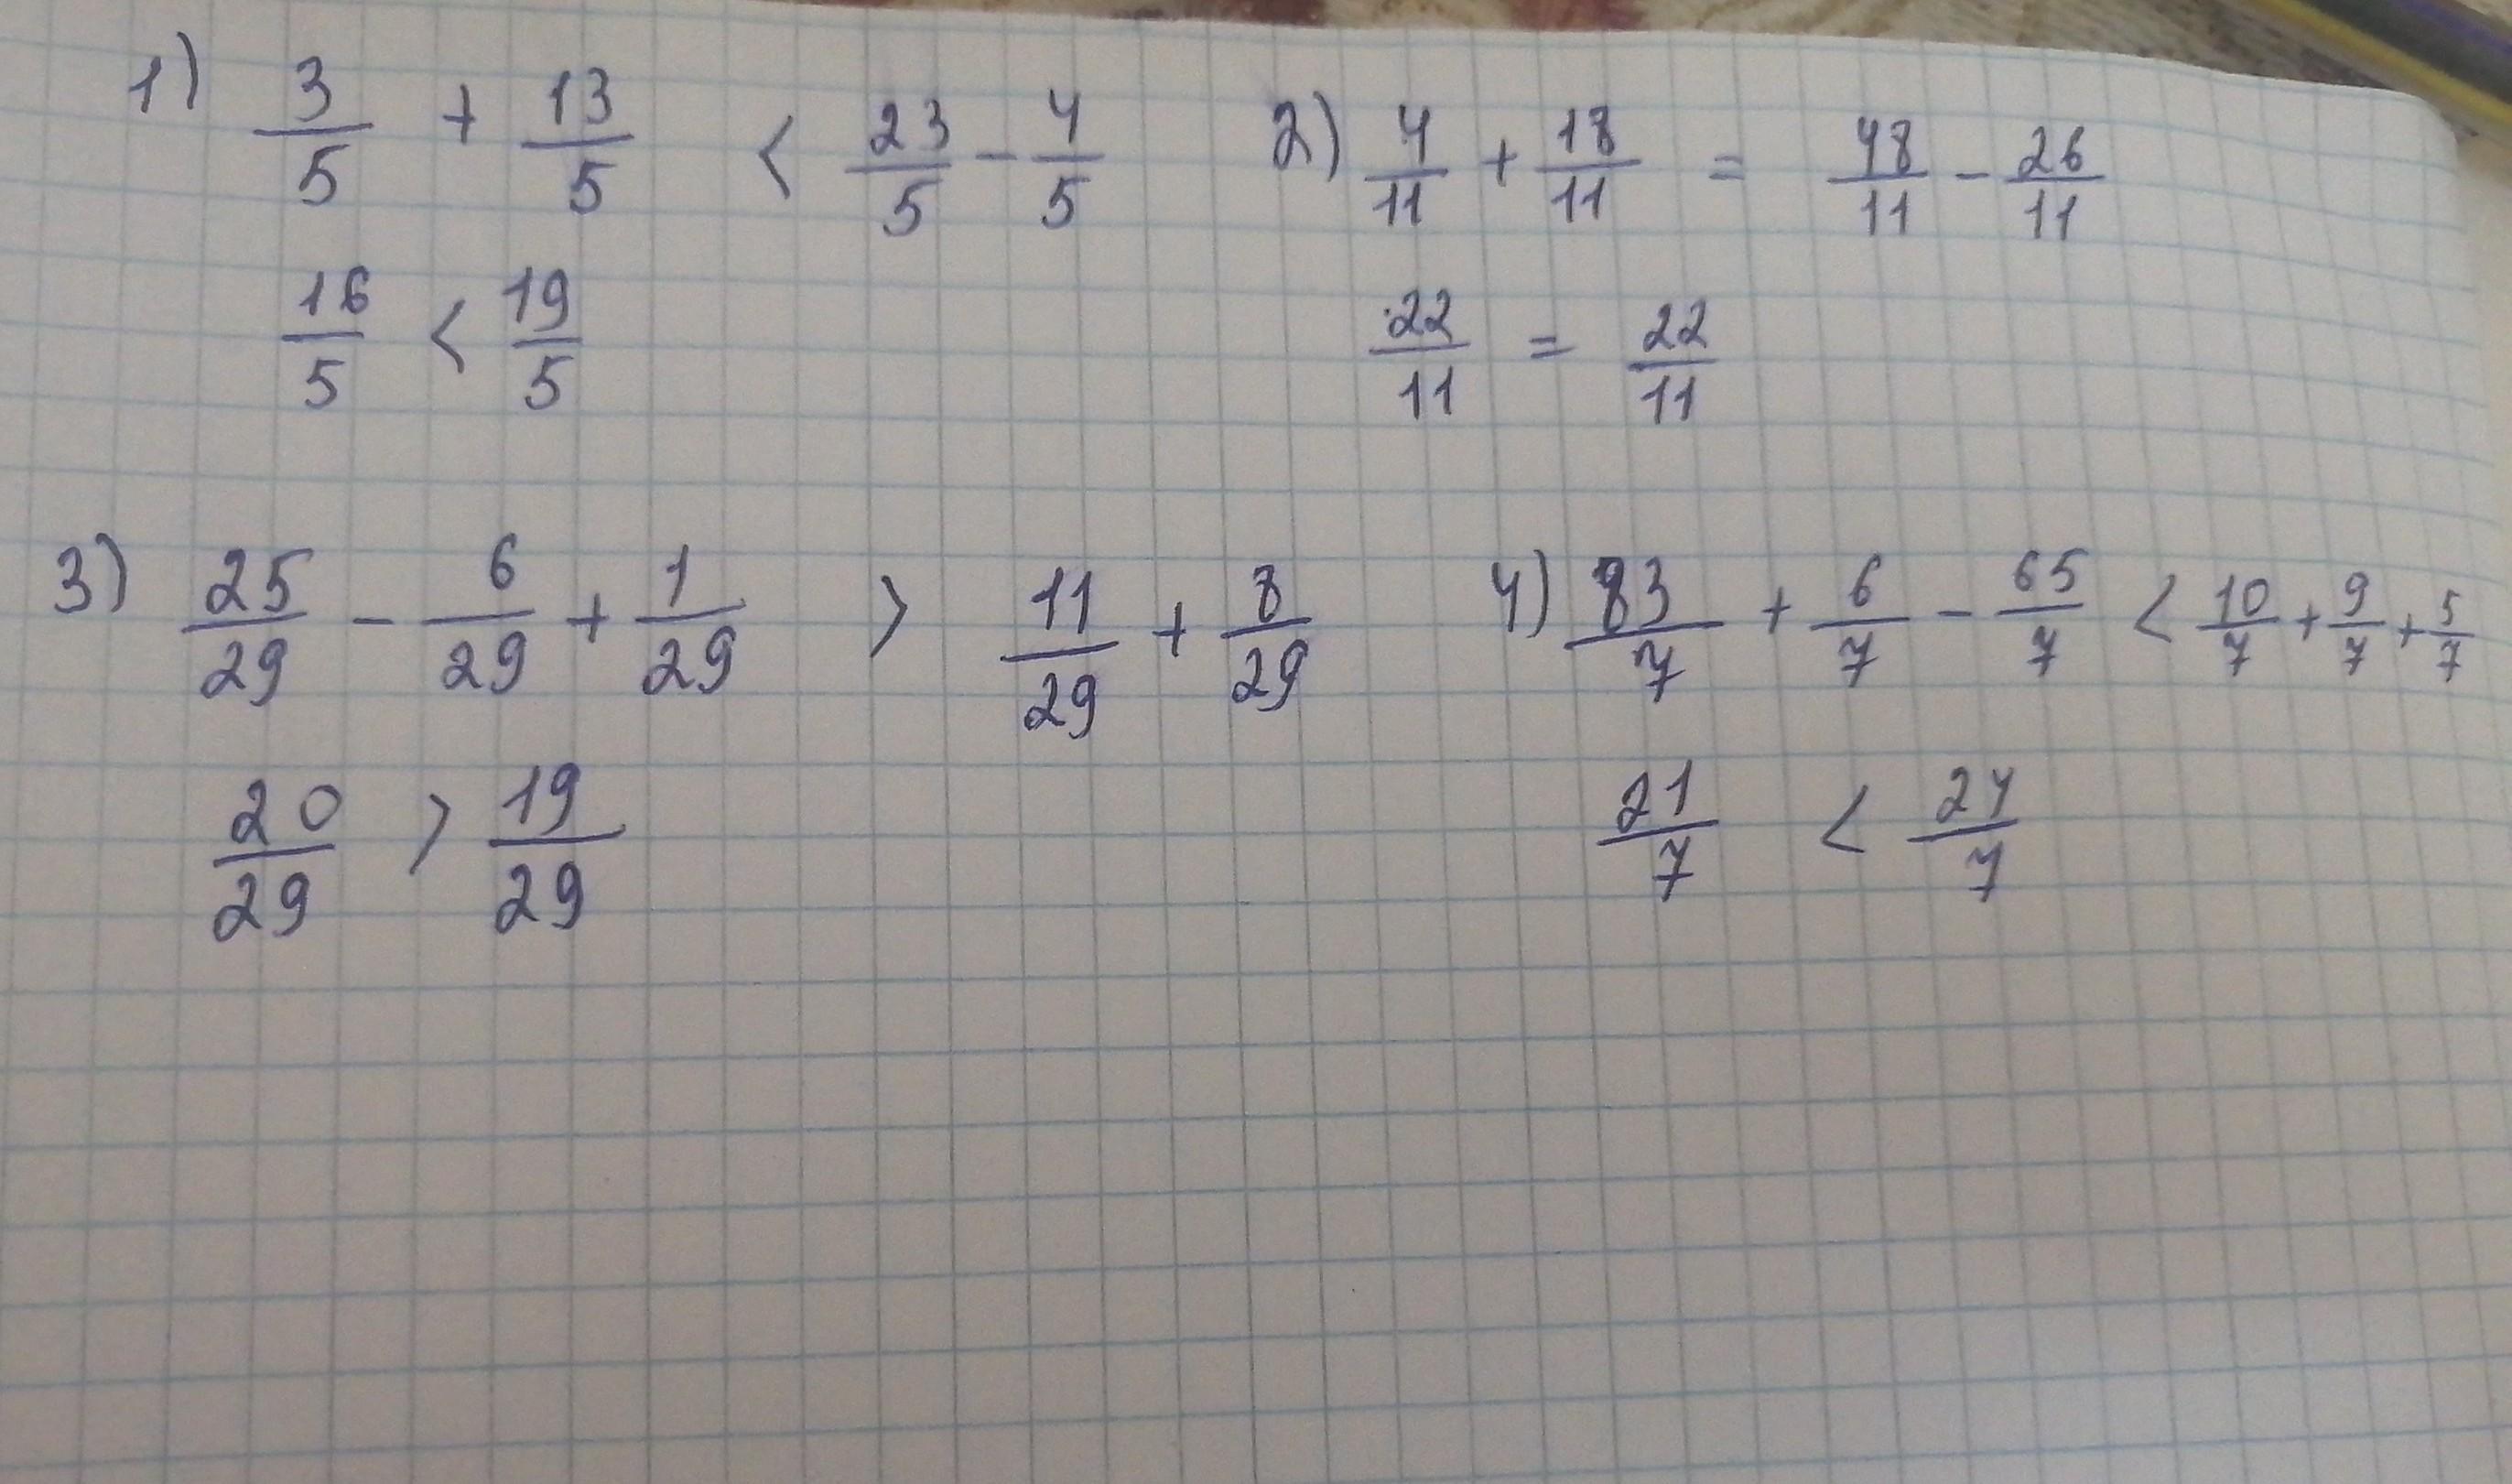 1) 3/5 + 13/5 < 23/5 - 4/5
16/5 < 19/5
2) 4/11 + 18/11 = 48/11 - 26/11
22/11 = 22/11
3) 25/29 - 6/29 + 1/29 > 11/29 + 8/29
20/29 > 19/29
4) 83/7 + 6/7 - 65/7 < 10/7 + 9/7 + 5/7
21/7 < 24/7